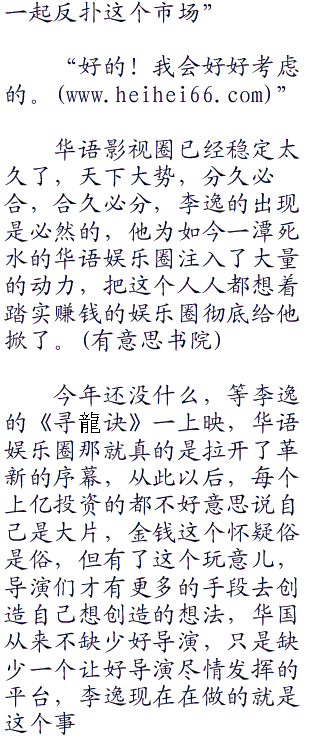 一起反扑这个市场”
“好的！我会好好考虑
的。(www.heihei66.com)”
华语影视圈已经稳定太
久了，天下大势，分久必
合，合久必分，李逸的出现
是必然的，他为如今一潭死
水的华语娱乐圈注入了大量
的动力，把这个人人都想着
踏实赚钱的娱乐圈彻底给他
掀了。(有意思书院)
今年还没什么，等李逸
的《寻龍诀》一上映，华语
娱乐圈那就真的是拉开了革
新的序幕，从此以后，每个
上亿投资的都不好意思说自
己是大片，金钱这个怀疑俗
是俗，但有了这个玩意儿，
导演们才有更多的手段去创
造自己想创造的想法，华国
从来不缺少好导演，只是缺
少一个让好导演尽情发挥的
平台，李逸现在在做的就是
这个事